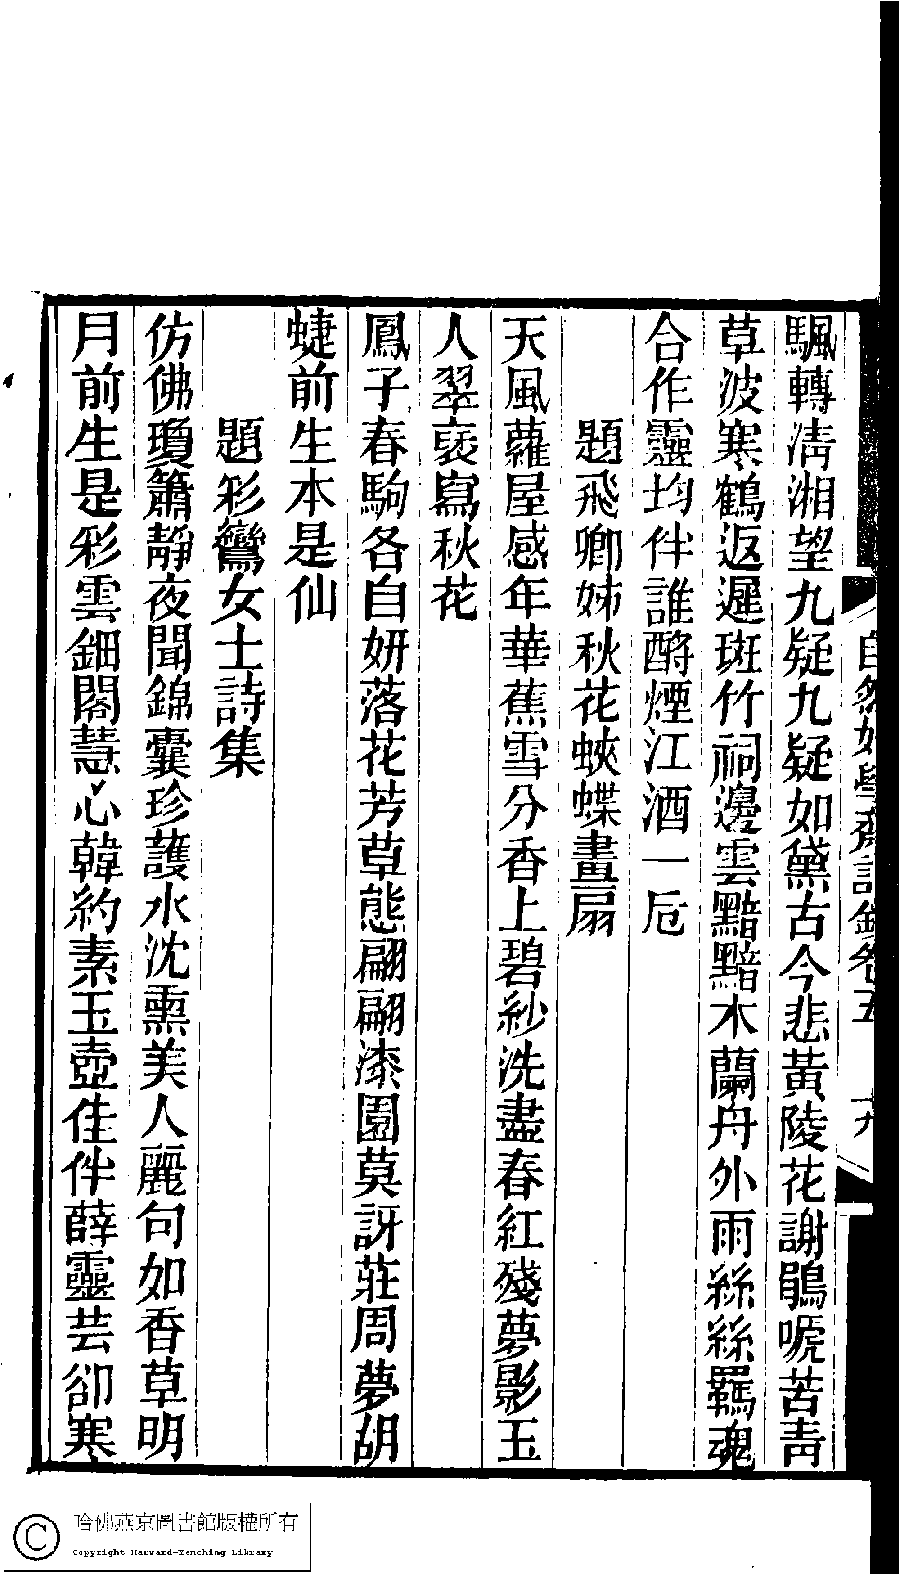 颿轉淸湘望九疑九疑如黛古今悲黃陵花謝鵑嗁苦靑
草波寒鶴返遲斑竹祠邊雲黯黯木蘭舟外雨絲絲羈魂
合作靈均伴誰酹煙江酒一卮
題飛卿姊秋花蛺蝶畫扇
天風蘿屋感年華蕉雪分香上碧紗洗盡春紅殘夢影玉
人翠袖寫秋花
鳳子春駒各自妍落花芳草態翩翩漆園莫訝莊周夢胡
蜨前生本是仙
題彩鸞女士詩集
仿佛瓊簫靜夜聞錦囊珍護水沈熏美人麗句如香草明
月前生是彩雲鈿閣慧心韓約素玉壺佳伴薛靈芸卻寒
自然好學齋詩鈔卷五 十九
哈佛燕京圖書館版權所有
Copyright Harvard-Yenching Library